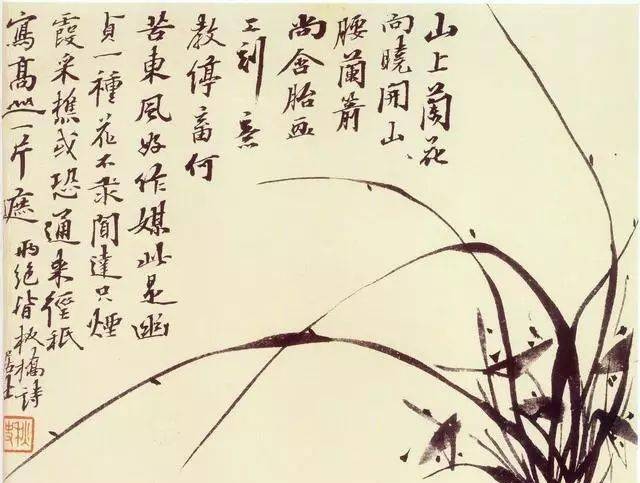 山上蘭花
向曉開山
腰蘭箭
尚含胎画
工刻意
教停蓄何
苦東風好作媒此是幽
貞一種花不求聞達只煙
霞采樵或恐通来徑祇
寫高山一片遮 兩絕皆板橋詩
居士